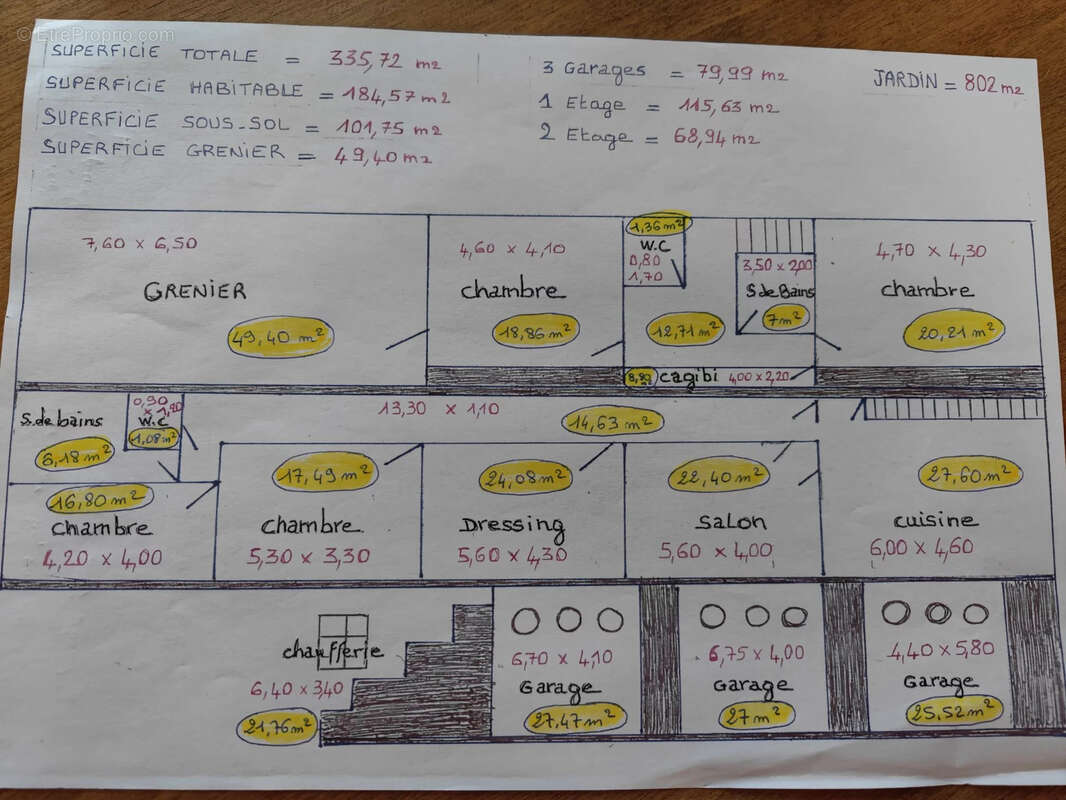 © EtreProprio.com
SUPERFICIE TOTALE = 335,72 m2
SUPERFICIE HABITABLE = 184,57 m2
SUPERFICIE SOUS-SOL = 101,75 m2
SUPERFICIE GRENIER = 49,40 m2
3 Garages = 79,99 m2
1 Etage = 115,63 m2
2 Etage = 68,94 m2
JARDIN = 802 m2
7,60 x 6,50
GRENIER
49,40 m²
4,60 x 4,10
chambre
18,86 m²
1,36 m²
W.C
0,80
1,70
12,71 m²
3,50 x 2,00
S de Bains
7 m²
4,70 x 4,30
chambre
20,21 m²
8,80
cagibi 4,00 x 2,20
S. de bains
6,18 m²
0,90
x 1,20
W.C
1,08 m²
13,30 x 1,10
14,63 m²
16,80 m²
chambre
4,20 x 4,00
17,49 m²
chambre
5,30 x 3,30
24,08 m²
Dressing
5,60 x 4,30
22,40 m²
Salon
5,60 x 4,00
27,60 m²
cuisine
6,00 x 4,60
chaufferie
6,40 x 3,40
21,76 m²
6,70 x 4,10
Garage
27,47 m²
6,75 x 4,00
Garage
27 m²
4,40 x 5,80
Garage
25,52 m²